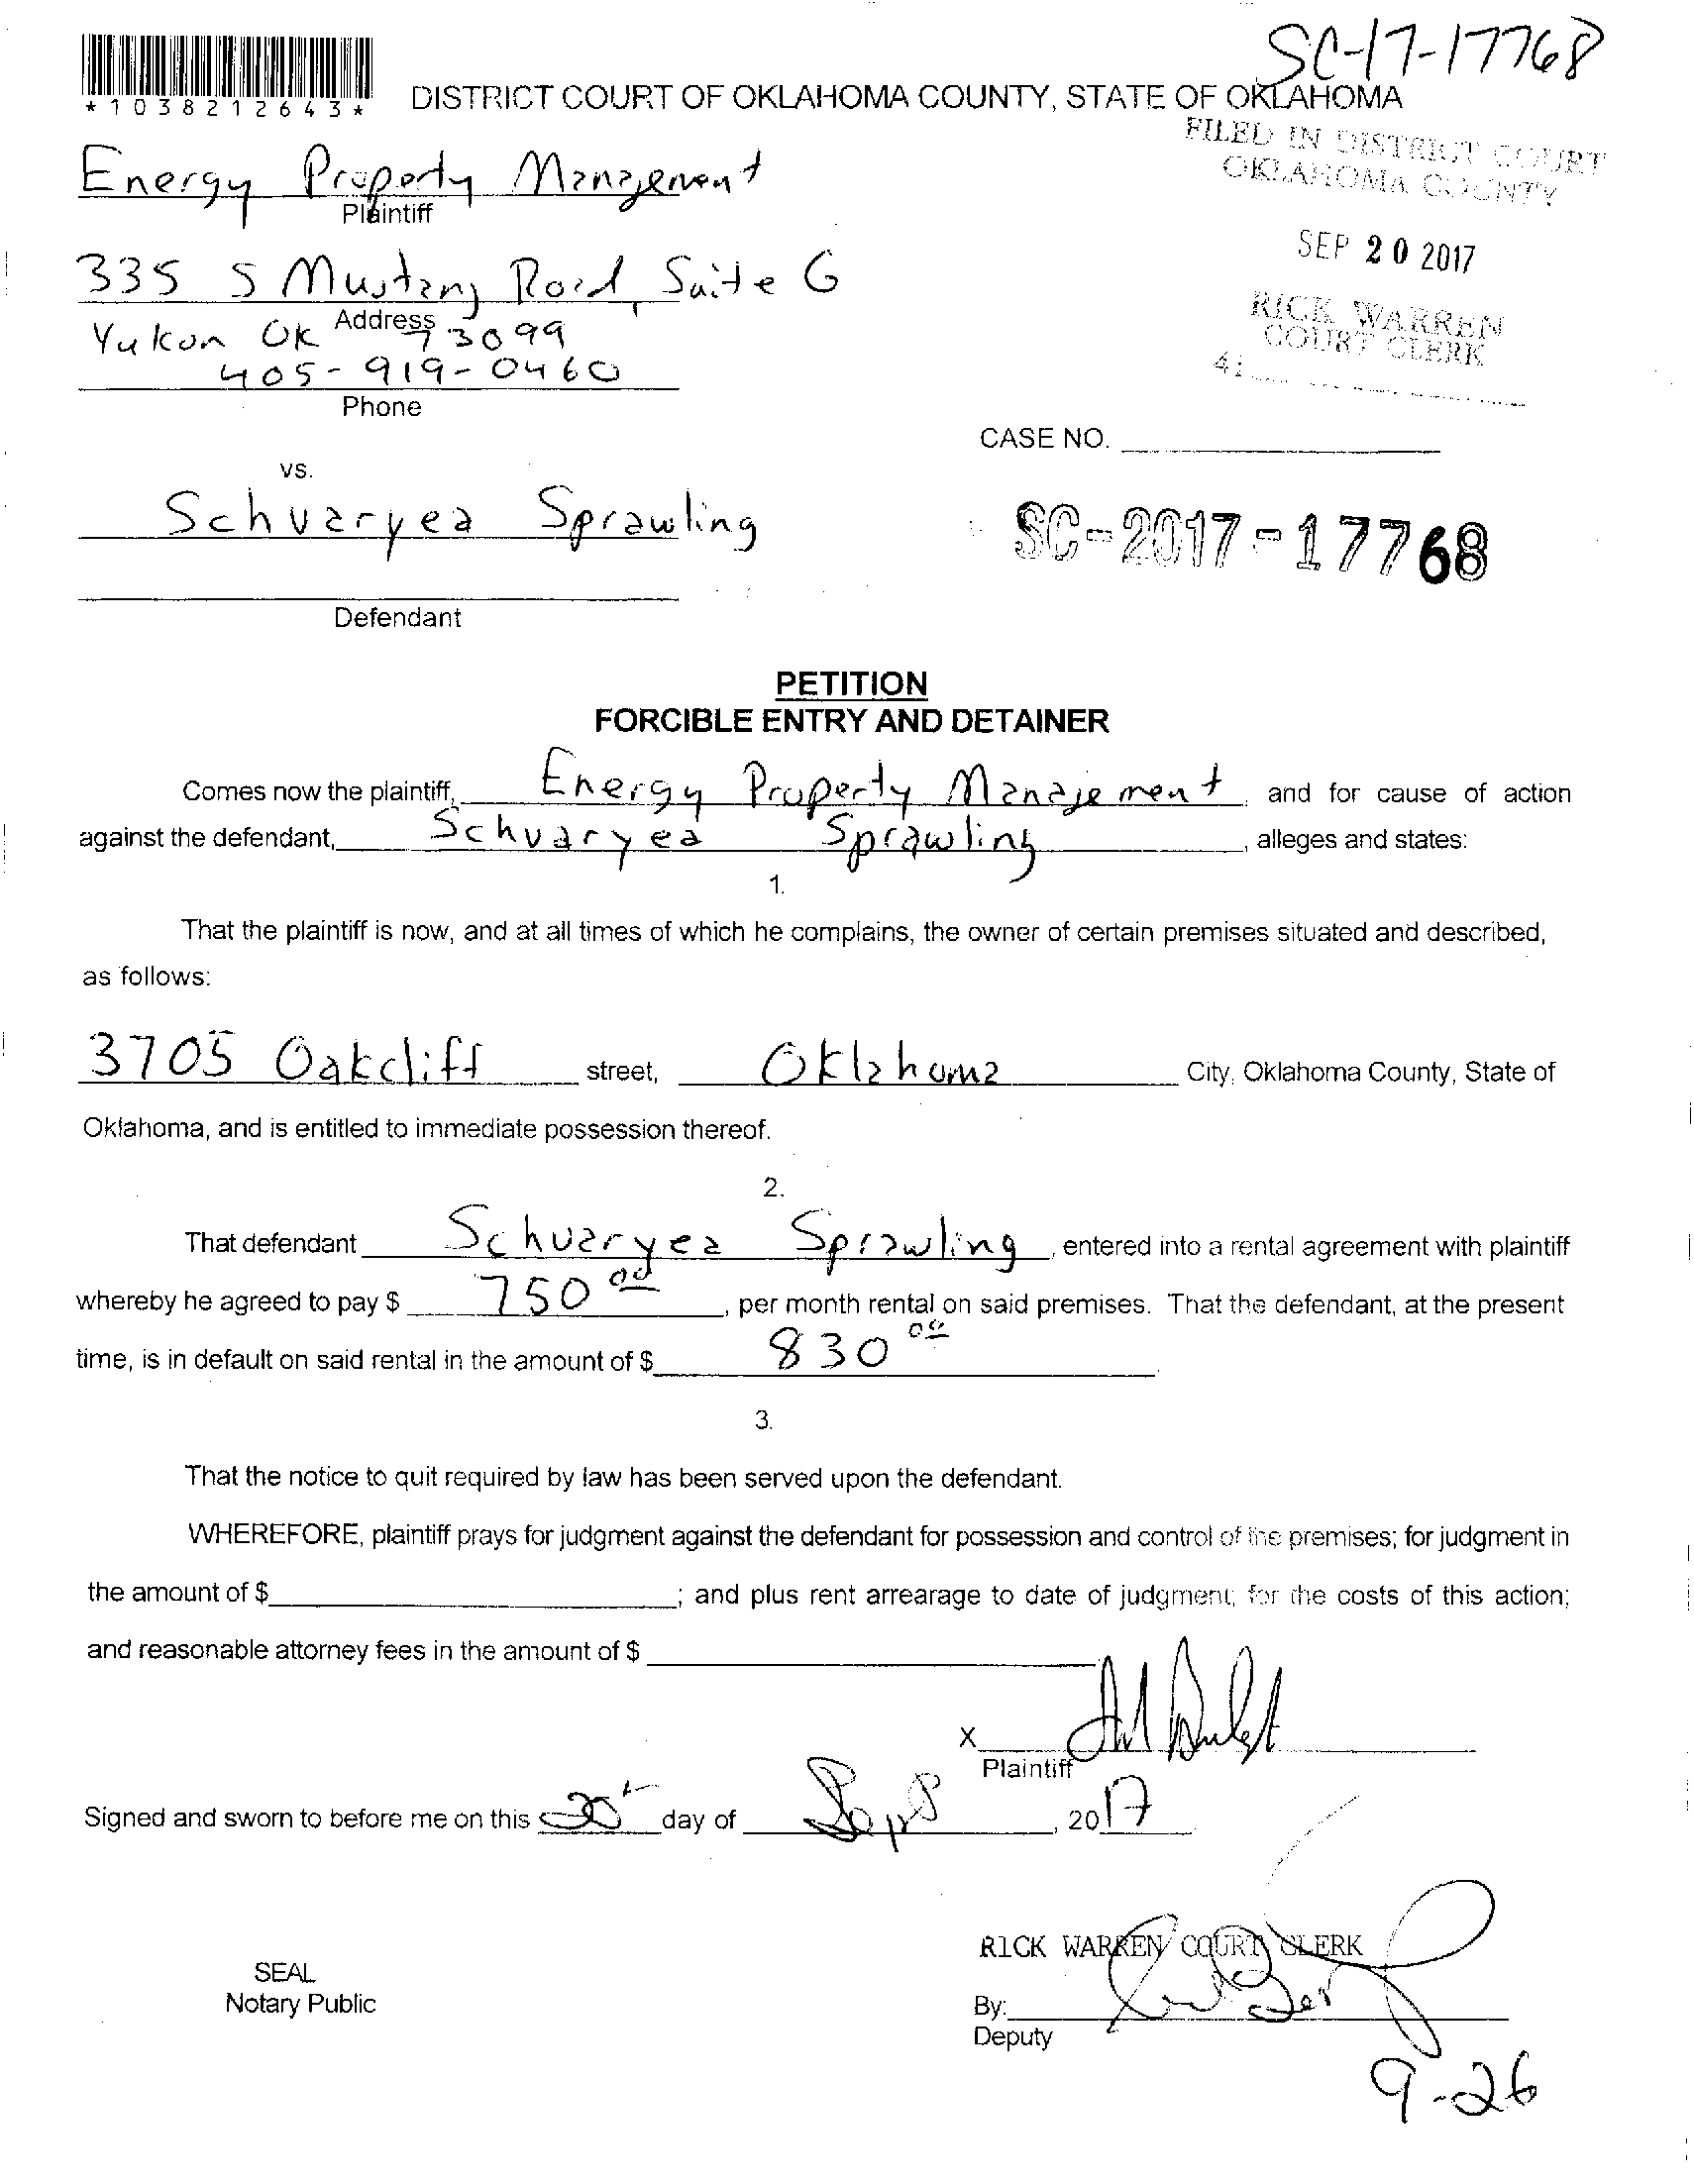 SC-17-17768
*1038212643*
DISTRICT COURT OF OKLAHOMA COUNTY, STATE OF OKLAHOMA
FILED IN DISTRICT COURT
OKLAHOMA COUNTY
Energy Property Management
Plaintiff
SEP 20 2017
335 S Mustang Road, Suite G
Address
RICK WARREN
COURT CLERK
Yukon OK 73099
41
405-919-0460
Phone
CASE NO.
vs.
Schvaryea Sprawling
SC-2017-17768
Defendant
PETITION
FORCIBLE ENTRY AND DETAINER
Comes now the plaintiff, Energy Property Management, and for cause of action
against the defendant, Schvaryea Sprawling, alleges and states:
1.
That the plaintiff is now, and at all times of which he complains, the owner of certain premises situated and described,
as follows:
3705 Oakcliff street, Oklahoma City, Oklahoma County, State of
Oklahoma, and is entitled to immediate possession thereof.
2.
That defendant Schvaryea Sprawling, entered into a rental agreement with plaintiff
whereby he agreed to pay $ 750 00, per month rental on said premises. That the defendant, at the present
time, is in default on said rental in the amount of $ 830 00.
3.
That the notice to quit required by law has been served upon the defendant.
WHEREFORE, plaintiff prays for judgment against the defendant for possession and control of the premises; for judgment in
the amount of $; and plus rent arrearage to date of judgment; for the costs of this action;
and reasonable attorney fees in the amount of $
X
Plaintiff
Signed and sworn to before me on this 20th day of Sept, 2017
RICK WARREN COURT CLERK
SEAL
Notary Public
By:
Deputy
9-26